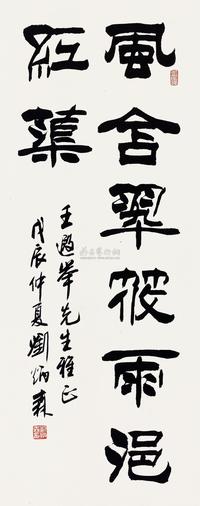 風含翠筱雨浥
紅蕖
王遐举先生雅正
戊辰仲夏劉炳森